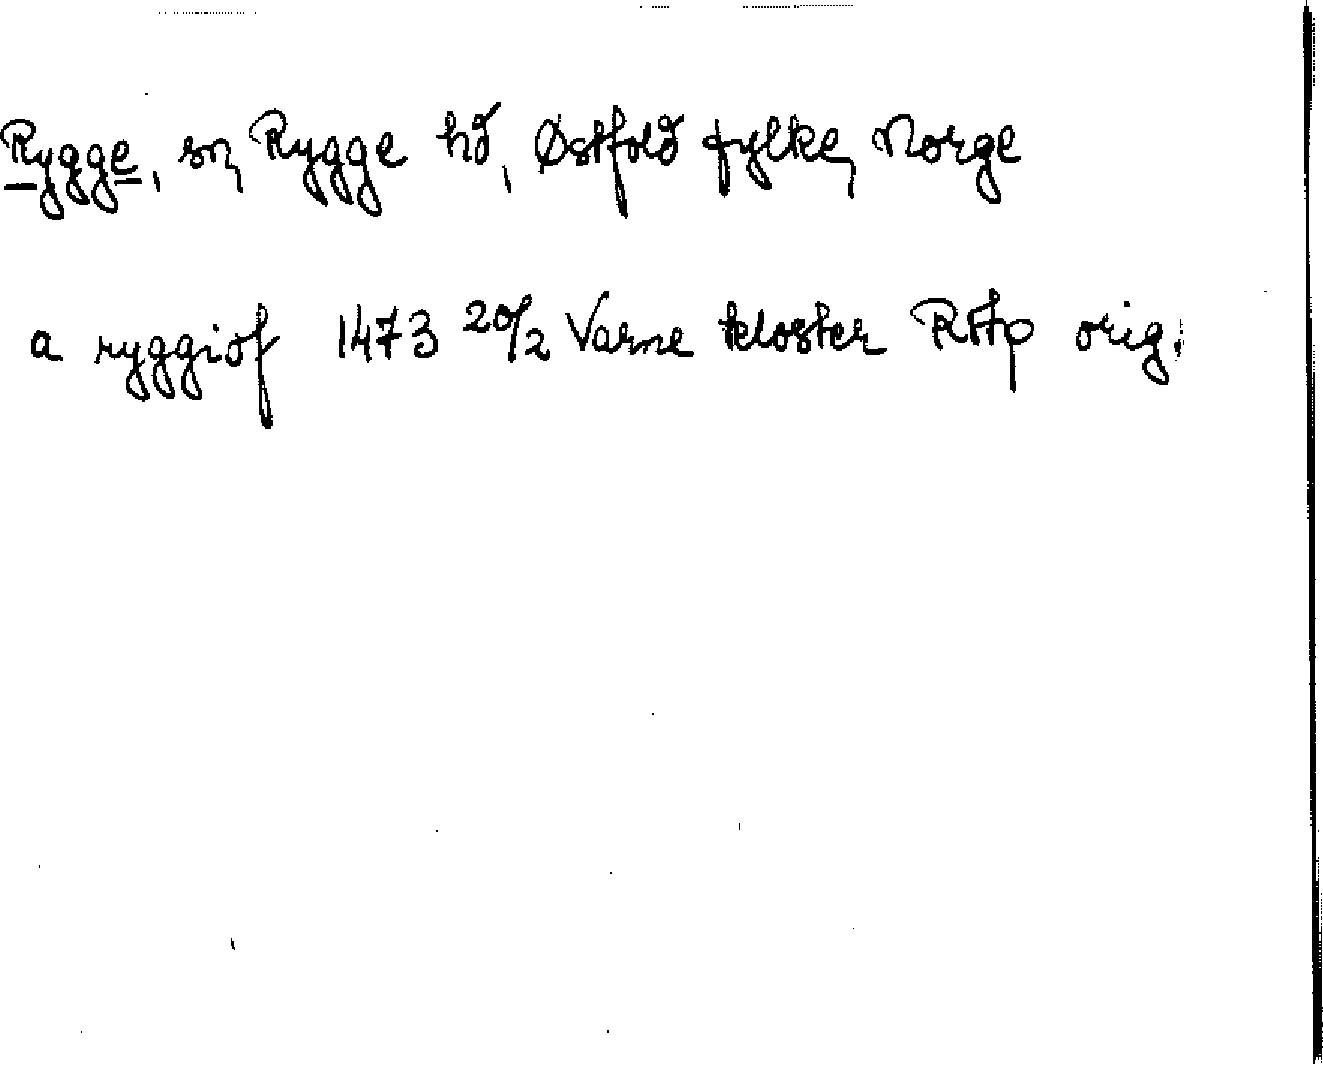 Rygge, sn, Rygge hd, Østfold fylke, Norge
a ryggiof 1473 20/2 Varne kloster RAp orig.